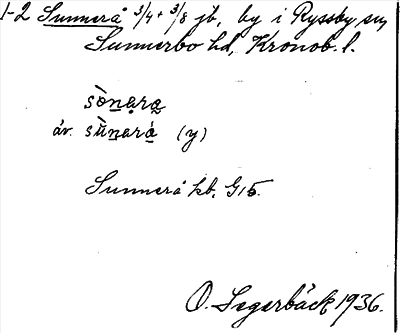 1-2 Sunnerå 3/4 + 3/8 jb, by i Ryssby sn,
Sunnerbo hd, Kronob. l.
sònara
äv. sùnará (y)
Sunnerå hb. G15.
O. Segerbäck 1936.